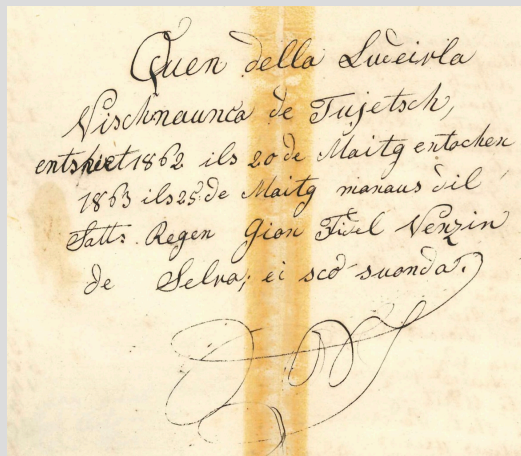 Quen della Ludeivla
Vischnaunca de Tujetsch,
entschiet 1862 ils 20 de Maitg entochen
1863 ils 25 de Maitg manaus dil
Satts. Regen Gion Fidel Venzin
de Selva; ei sco suonda.